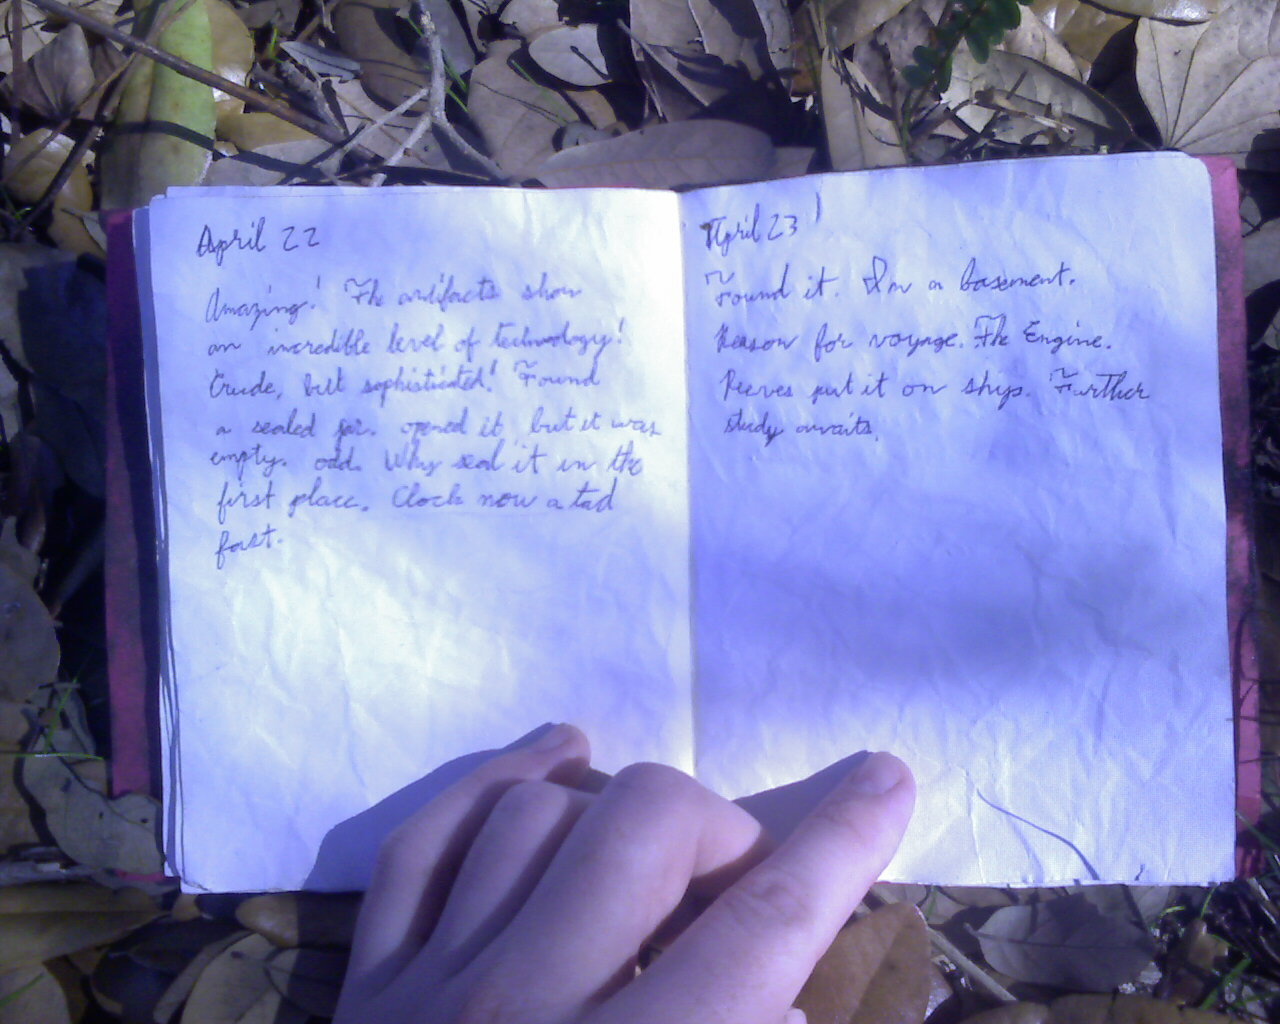 April 22
Amazing! The artifacts show
an incredible level of technology!
Crude, but sophisticated! Found
a sealed jar. opened it, but it was
empty. odd. Why seal it in the
first place. Clock now a tad
fast.
April 23
Found it. In a basement.
Reason for voyage. The Engine.
Reeves put it on ship. Further
study awaits.